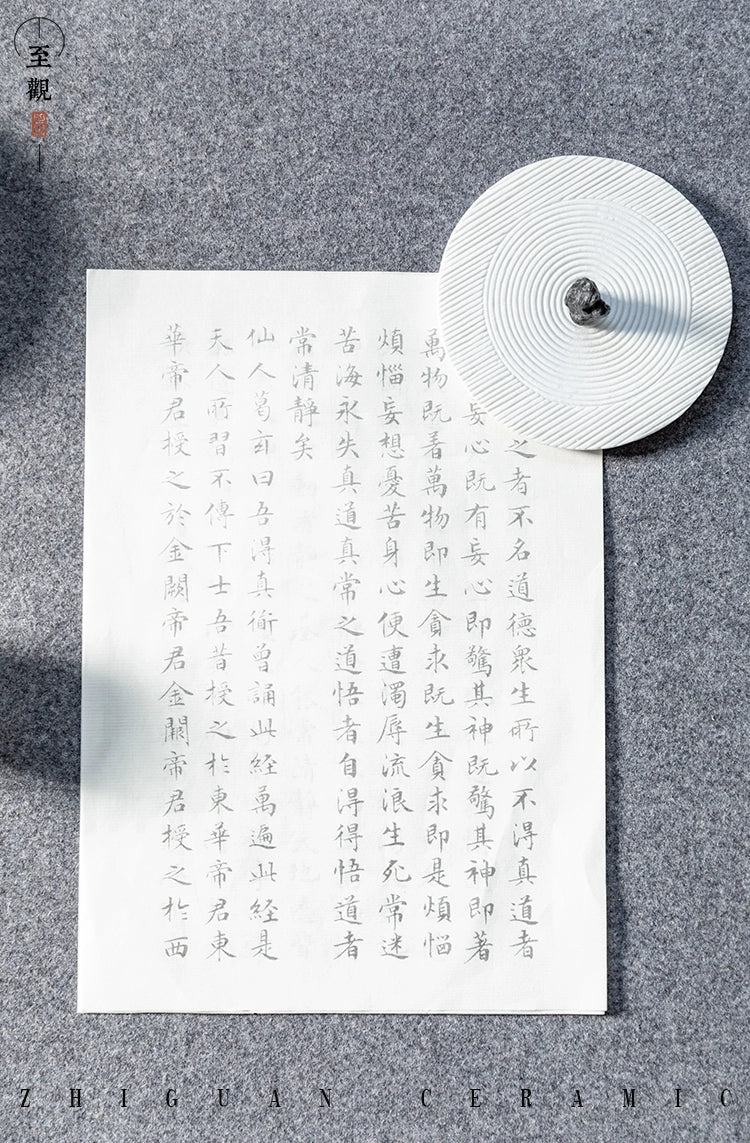 至觀
之者不名道德衆生所以不淂真道者
妄心既有妄心即驚其神既驚其神即著
萬物既着萬物即生貪求既生貪求即是煩惱
煩惱妄想憂苦身心便遭濁辱流浪生死常迷
苦海永失真道真常之道悟者自淂得悟道者
常清靜矣
仙人葛玄曰吾淂真衟曾誦此経萬遍此経是
天人所習不傳下士吾昔授之扵東華帝君東
華帝君授之於金闕帝君金闕帝君授之扵西
ZHIGUAN CERAMIC